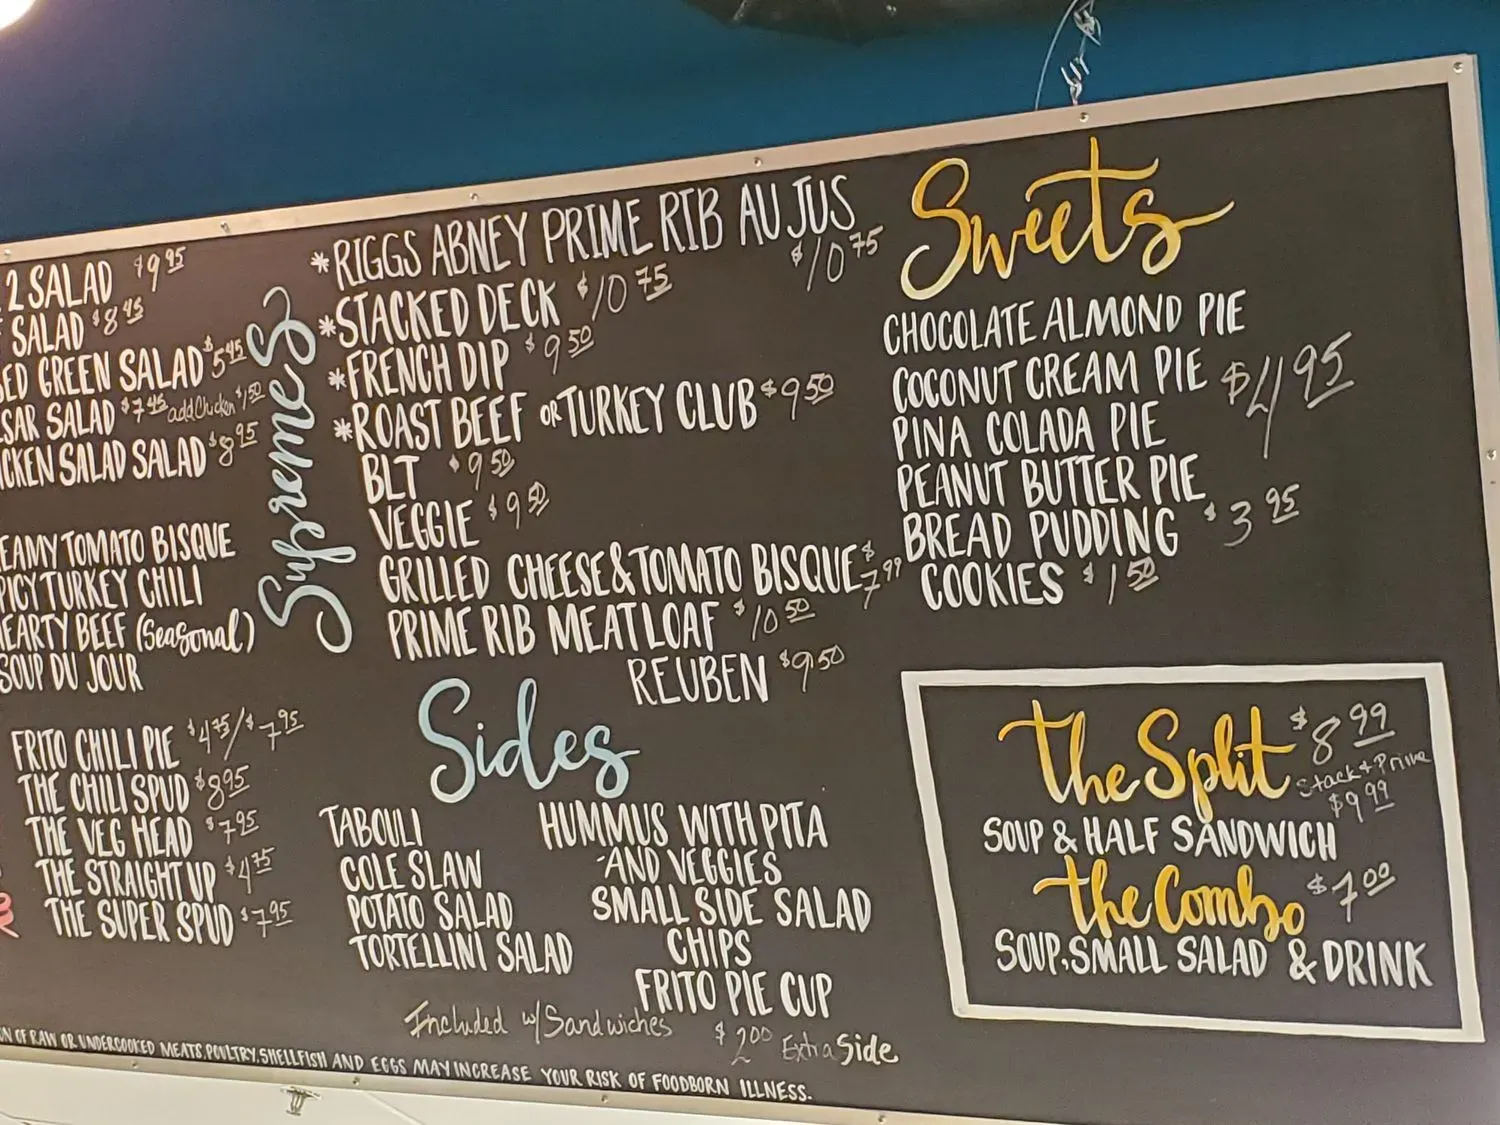 2 SALAD $9.95
SALAD $8.45
GREEN SALAD $5.45
SALAD $7.45 add Chicken $1.50
SALAD SALAD $8.95
TOMATO BISQUE
TURKEY CHILI
BEEF (Seasonal)
SOUP DU JOUR
FRITO CHILI PIE $4.75/$7.95
THE CHILI SPUD $8.95
THE VEG HEAD $7.95
THE STRAIGHT UP $4.75
THE SUPER SPUD $7.95
Supremes
*RIGGS ABNEY PRIME RIB AU JUS $10.75
*STACKED DECK $10.75
*FRENCH DIP $9.50
*ROAST BEEF OR TURKEY CLUB $9.50
BLT $9.50
VEGGIE $9.50
GRILLED CHEESE & TOMATO BISQUE $7.99
PRIME RIB MEATLOAF $10.50
REUBEN $9.50
Sides
TABOULI
COLE SLAW
POTATO SALAD
TORTELLINI SALAD
HUMMUS WITH PITA
AND VEGGIES
SMALL SIDE SALAD
CHIPS
FRITO PIE CUP
Included w/Sandwiches
$2.00 Extra Side
Sweets
CHOCOLATE ALMOND PIE
COCONUT CREAM PIE $4.95
PINA COLADA PIE
PEANUT BUTTER PIE
BREAD PUDDING $3.95
COOKIES $1.50
The Split $8.99
Stack + Prime
$9.99
SOUP & HALF SANDWICH
The Combo $7.00
SOUP, SMALL SALAD & DRINK
OF RAW OR UNDERCOOKED MEATS, POULTRY, SHELLFISH AND EGGS MAY INCREASE YOUR RISK OF FOODBORN ILLNESS.